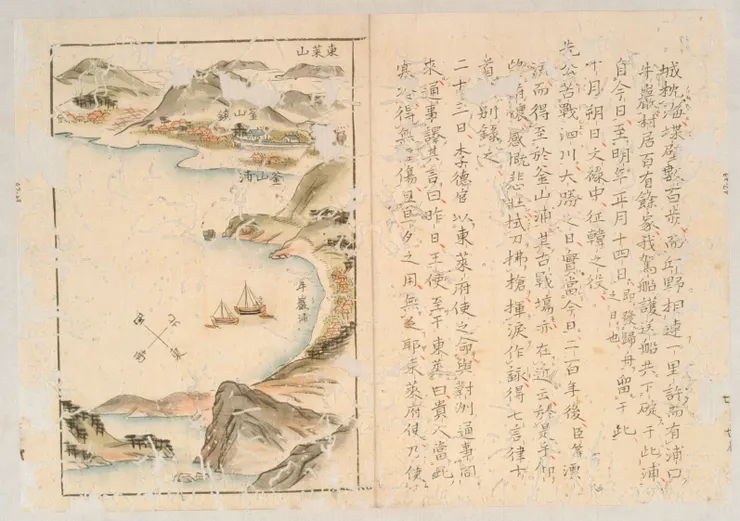 城枕海堞數百步而平野相連一里許而有浦口
牛巖村居百有餘家我駕船護送船共下碇于此浦
自今日至明年正月十四日即發歸舟之日也留于此
十月朔日文祿中征韓之役
先公苦戰泗川大勝之日實當今日二百年後臣等漂
流而得至於釜山浦其古戰場亦在近云於是手仰
懷感慨悲壯拭刀拂槍揮淚作詠得七言律十
首別錄之
二十三日李德官以東萊府使之命與對州通事同
來通事譯其言曰昨日王使至于東萊曰貴人當此
寒冷得無傷且旦夕之用無乏耶東萊府使乃使
東萊山
釜山鎮
釜山浦
牛巖浦
北
西
南
東